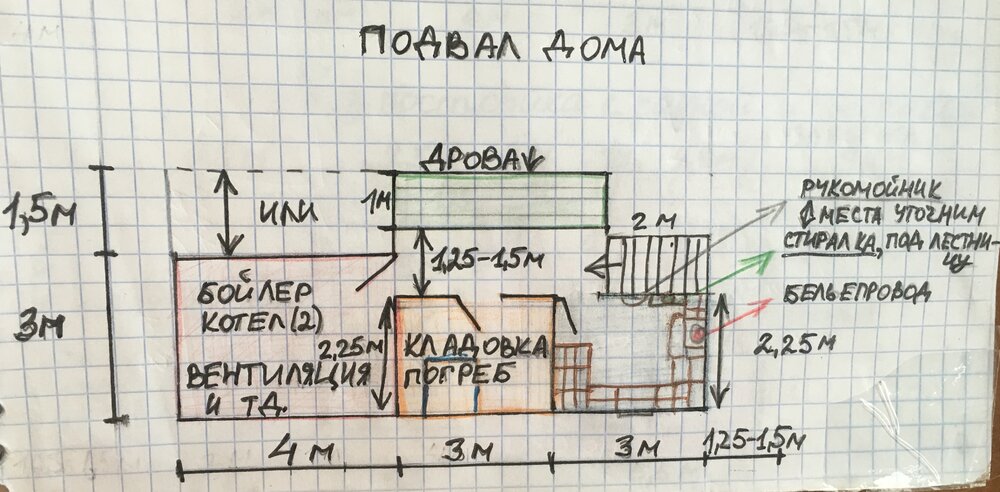 ПОДВАЛ ДОМА
ДРОВА
1,5м
ИЛИ
1м
2 м
РУКОМОЙНИК
МЕСТА УТОЧНИМ
СТИРАЛКА, ПОД ЛЕСТНИ-
ЦУ
БЕЛЬЕПРОВОД
1,25-1,5м
3м
БОЙЛЕР
КОТЕЛ(2)
ВЕНТИЛЯЦИЯ
И ТД.
2,25м
КЛАДОВКА
ПОГРЕБ
2,25м
4 м
3 м
3 м
1,25-1,5м